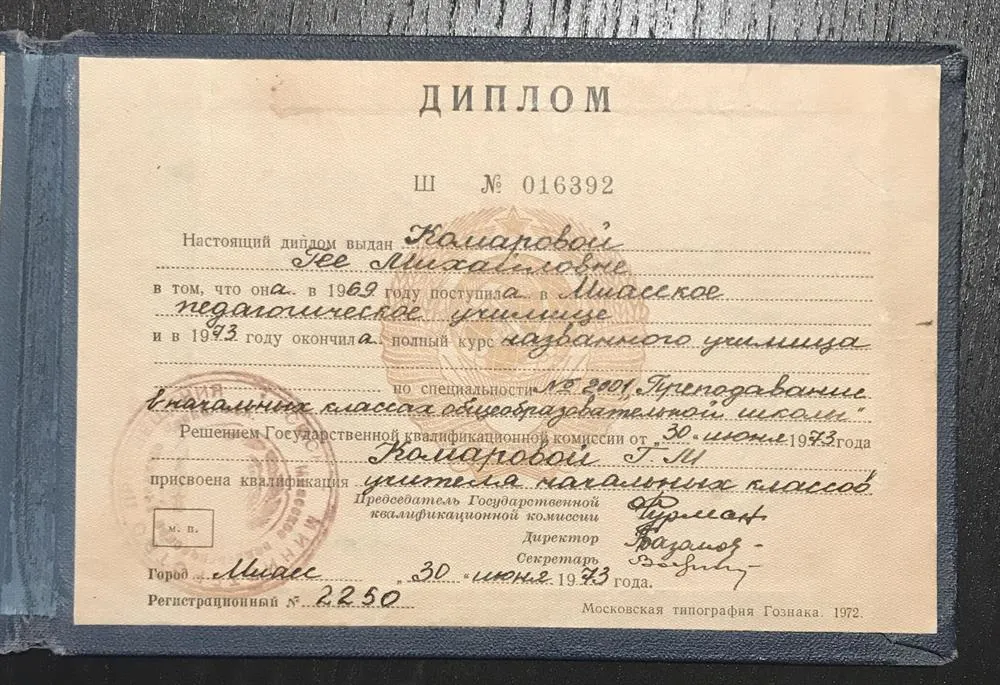 ДИПЛОМ
Ш № 016392
Настоящий диплом выдан Комаровой
Гее Михайловне
в том, что она в 1969 году поступила в Миасское
педагогическое училище
и в 1973 году окончила полный курс названного училища
по специальности № 2001, Преподавание
в начальных классах общеобразовательной школы"
Решением Государственной квалификационной комиссии от „30" июня 1973 года
Комаровой Г М
присвоена квалификация учителя начальных классов
Председатель Государственной
квалификационной комиссии Фурман
Директор
м. п.
Секретарь
Город Миасс „30" июня 1973 года.
Регистрационный № 2250
Московская типография Гознака. 1972.